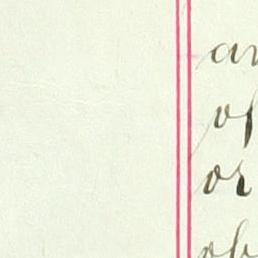 an
of
or
ob